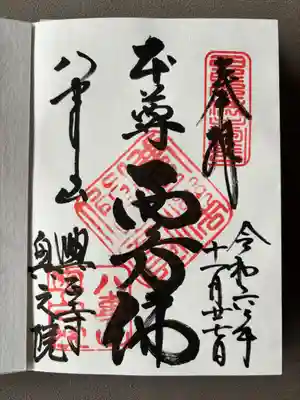 奉拝
令和六年
十一月廿七日
本尊
西方佛
八事山
興正寺
奥之院